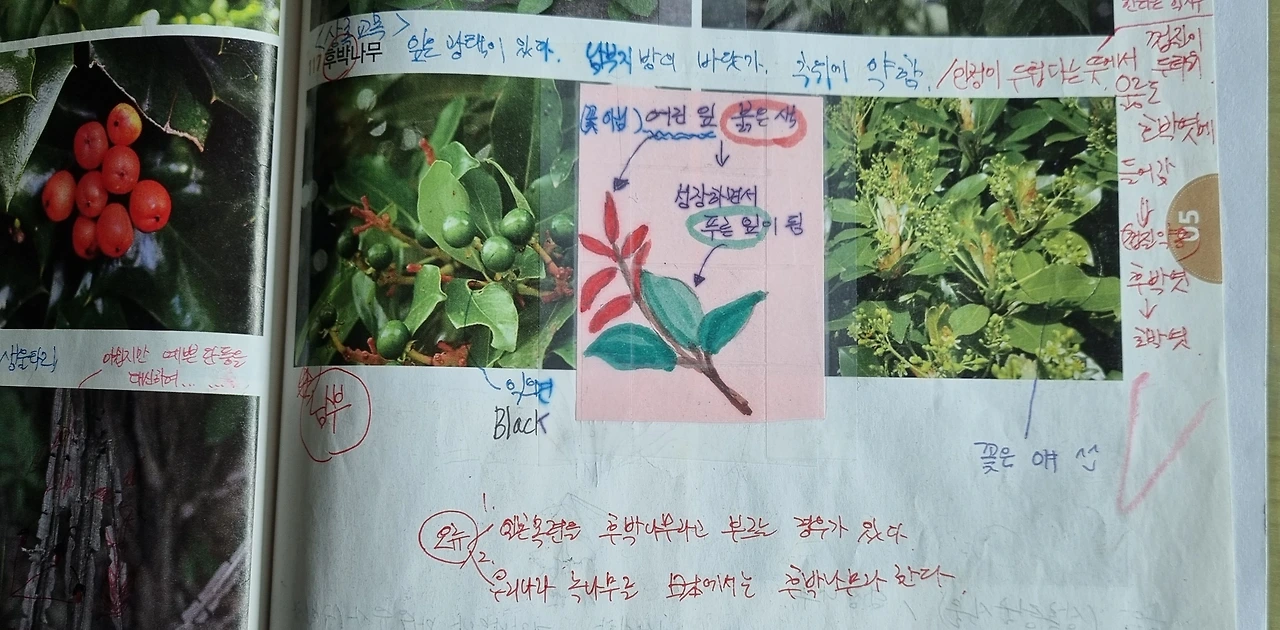 <상록교목>
117 후박나무 잎은 광택이 있다. 남부지방의 바닷가, 추위에 약함. /인정이 두텁다는 뜻에서
껍질이
두터워
오늘
호박엿에
들어갓
⇓
껍질
후박엿
↓
호박엿
(꽃 아님) 어린 잎 붉은 색
↓
성장하면서
푸른 잎이 됨
익으면
Black
남부
꽃은
아쉽지만 예쁜 단풍을
대신하여......
오류
1. 일본목련을 후박나무라고 부르는 경우가 있다.
2. 우리나라 녹나무를 日本에서는 후박나무라 한다.